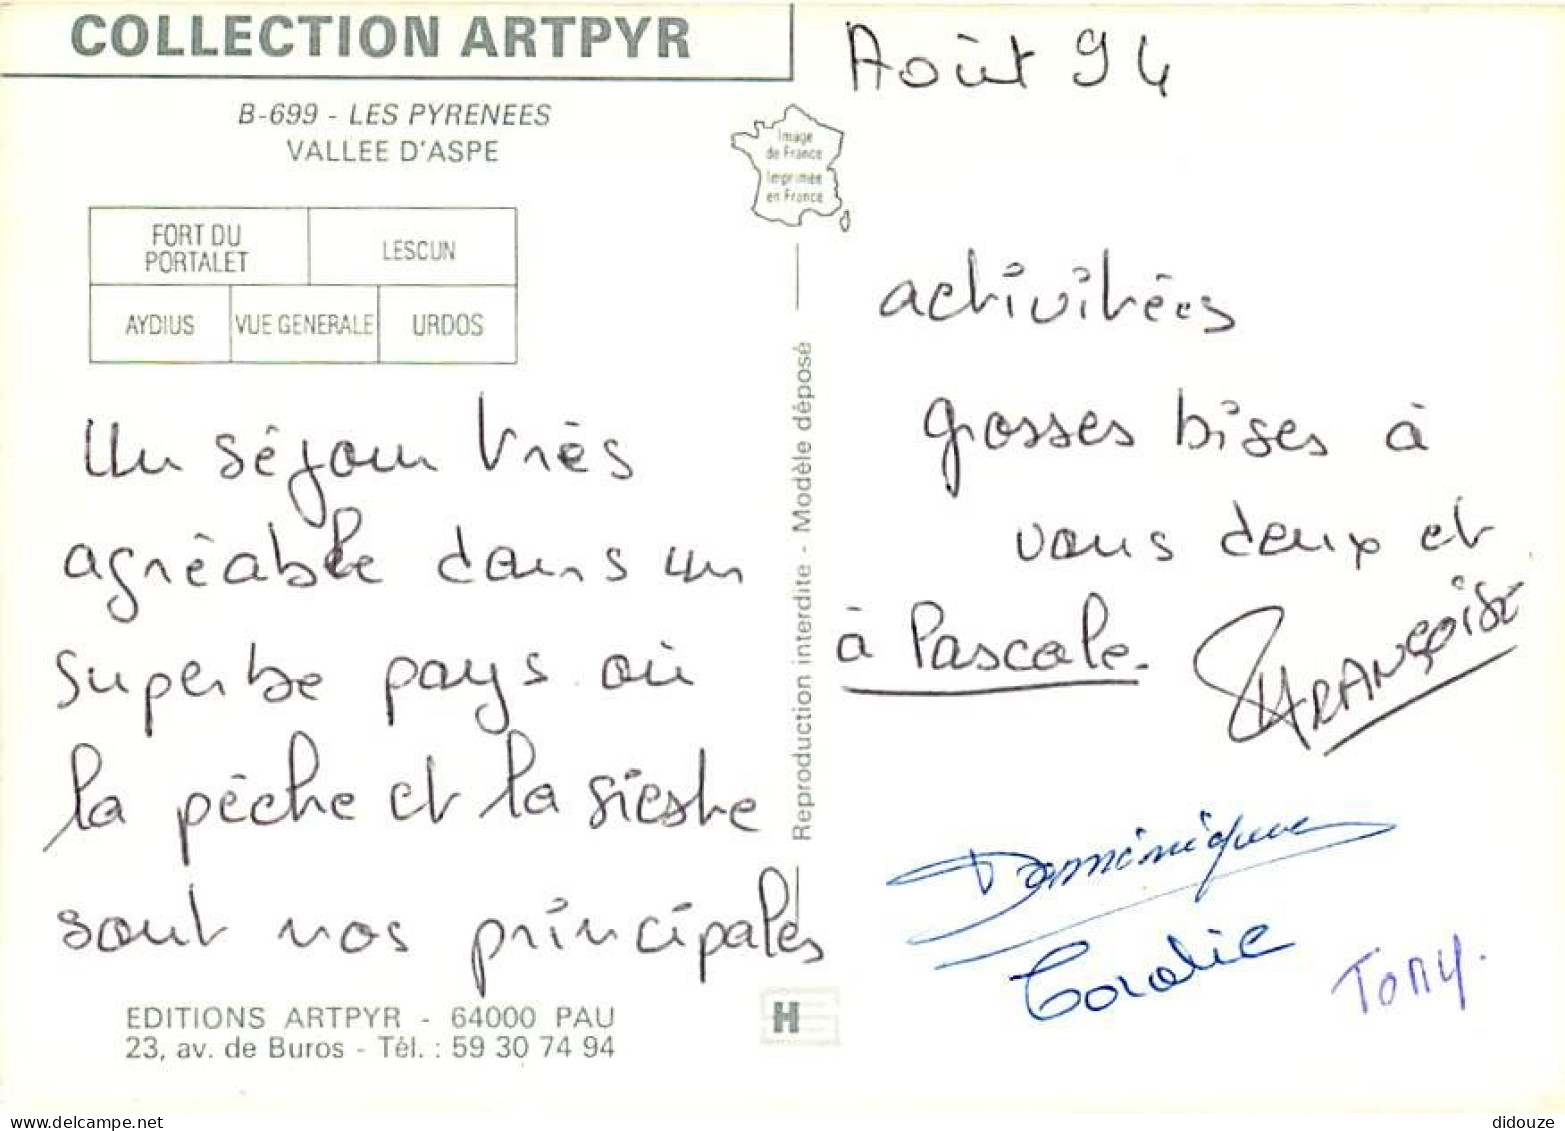 COLLECTION ARTPYR
B-699 - LES PYRENEES
VALLEE D'ASPE
FORT DU
PORTALET
LESCUN
AYDIUS
VUE GENERALE
URDOS
Un séjour très
agréable dans un
superbe pays où
la pêche et la sieste
sont nos principales
EDITIONS ARTPYR - 64000 PAU
23, av. de Buros - Tél. : 59 30 74 94
Image
de France
Imprimée
en France
Reproduction interdite - Modèle déposé
H
Août 94
activitées
grosses bises à
vous deux et
à Pascale.
FRANÇOISE
Dominique
Coralie
Tony.
didouze